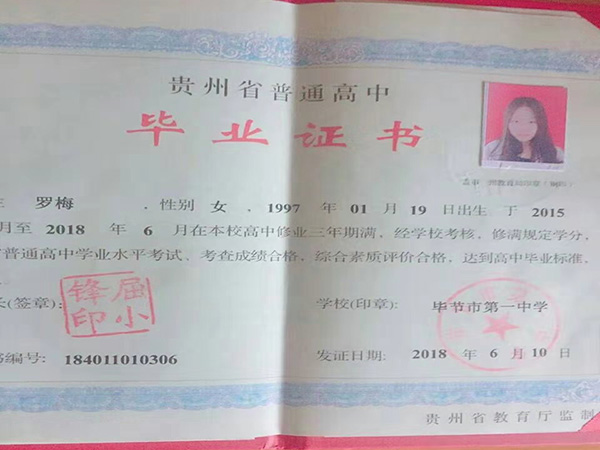 贵州省普通高中
毕业证书
罗梅 ,性别 女 ,1997 年 01 月 19 日出生,于 2015
月至 2018 年 6 月在本校高中修业三年期满,经学校考核,修满规定学分,
普通高中学业水平考试、考查成绩合格,综合素质评价合格,达到高中毕业标准,
长(签章): 屈小锋印 学校(印章): 毕节市第一中学
书编号: 184011010306 发证日期: 2018 年 6 月 10 日
贵州省教育厅监制